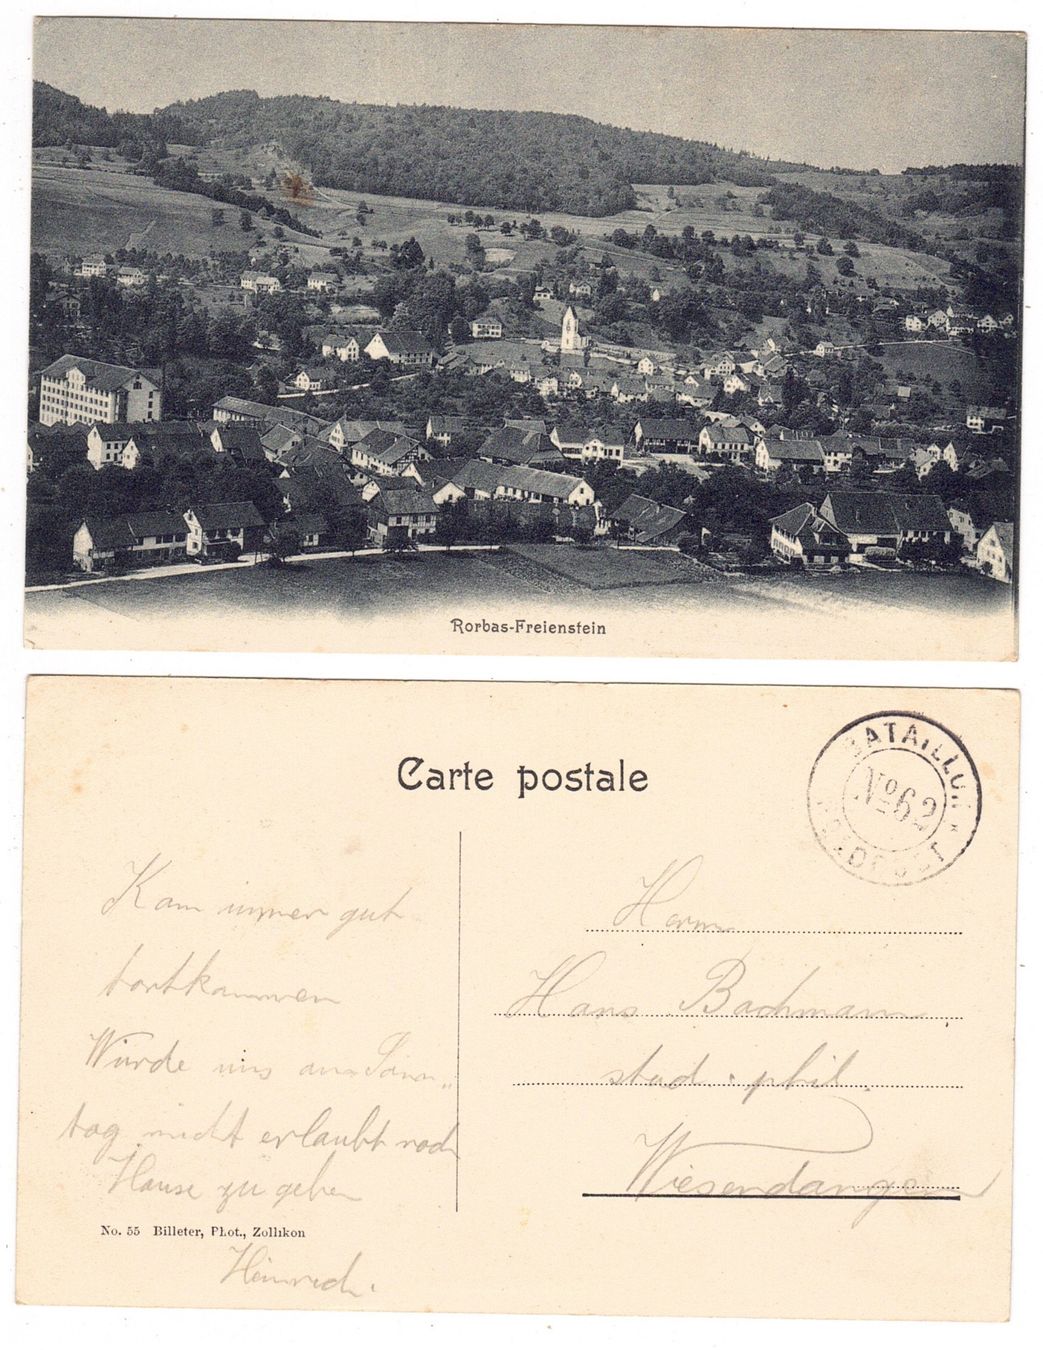 Rorbas-Freienstein
Carte postale
BATAILLON
No 62
FELDPOST
Kam immer gut
fortkammen
Würde uns am Sonn„
tag nicht erlaubt nach
Hause zu gehen
No. 55 Billeter, Phot., Zollikon
Heinrich.
Herrn
Hans Bachmann
stud. phil.
Wiesendangen